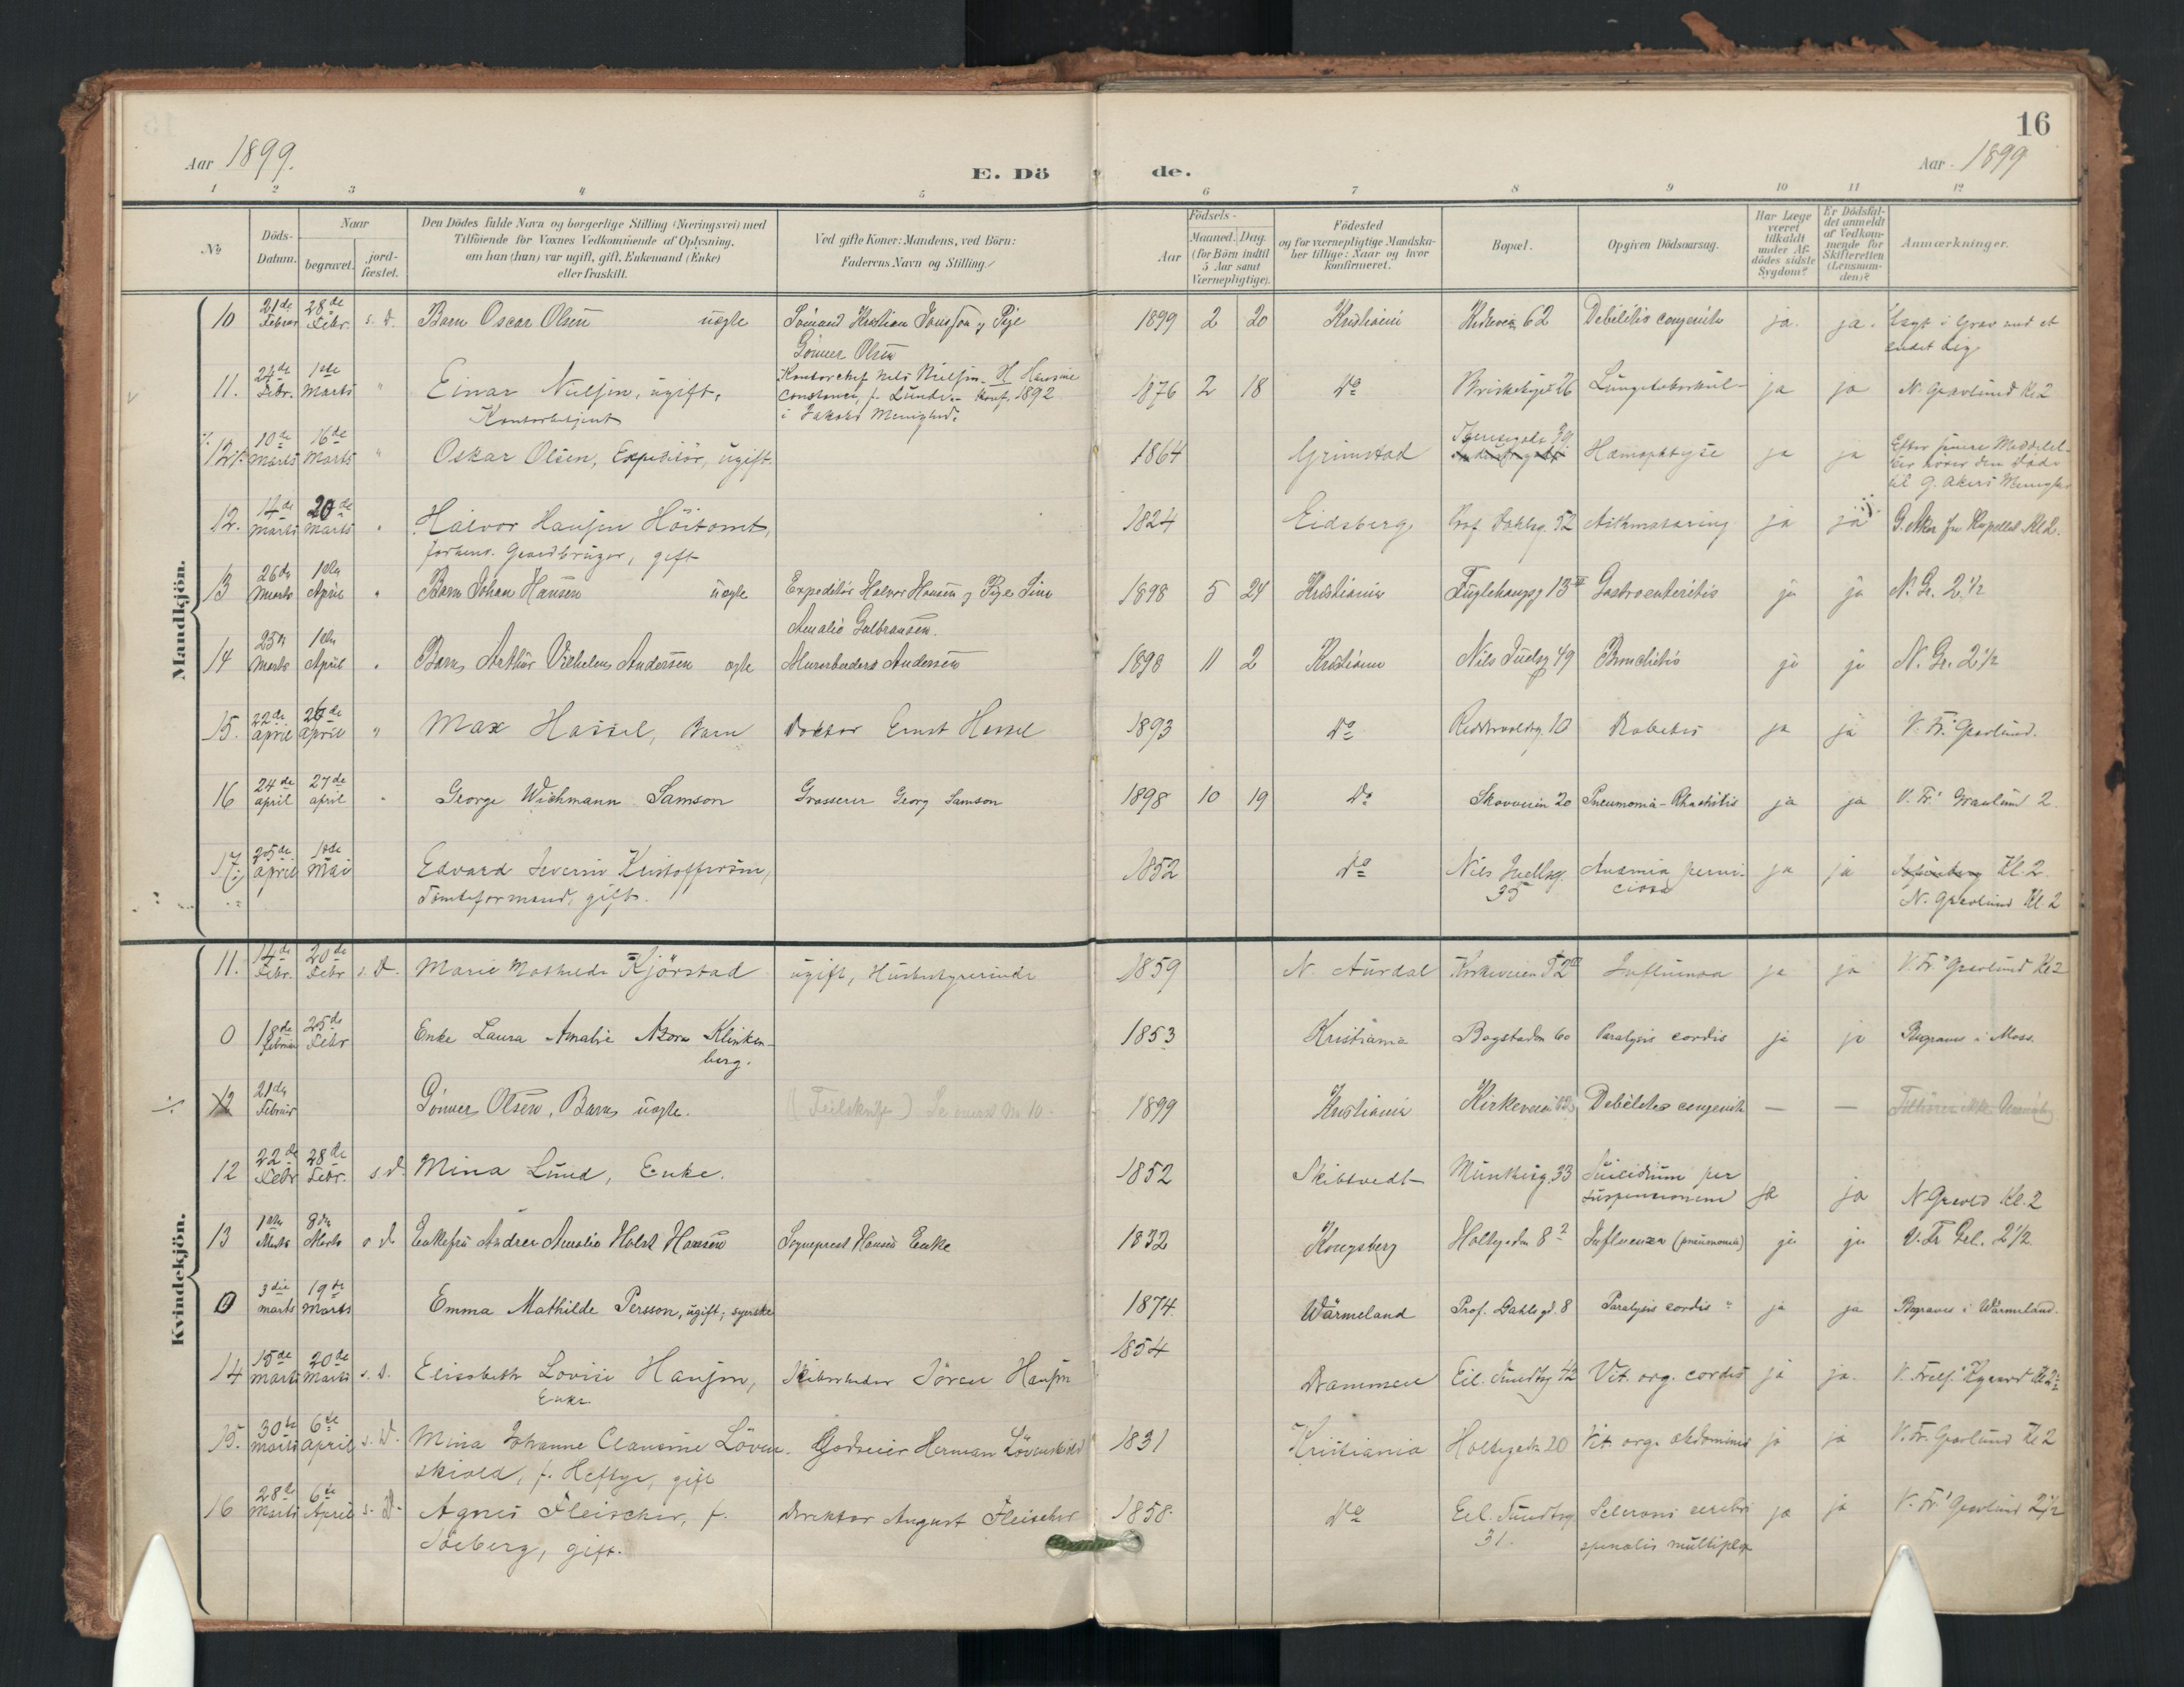 16
Aar 1899.
E. Dö de.
Aar 1899
1 2 3 4 5 6 7 8 9 10 11 12
No
Döds-Datum.
Naar
begravet.
jord-fæstet.
Den Dödes fulde Navn og borgerlige Stilling (Næringsvei) med
Tilföiende for Voxnes Vedkommende af Oplysning,
om han (hun) var ugift, gift, Enkemand (Enke)
eller fraskilt.
Ved gifte Koner: Mandens, ved Börn:
Faderens Navn og Stilling.
Födsels-
Aar
Maaned. Dag.
(for Börn indtil
5 Aar samt
Værnepligtige).
Födested
og for værnepligtige Mandska-
ber tillige: Naar og hvor
konfirmeret.
Bopæl.
Opgiven Dödsaarsag.
Har Læge
været
tilkaldt
under Af-
dödes sidste
Sygdom?
Er Dödsfal-
det anmeldt
af Vedkom-
mende for
Skifteretten
(Lensman-
den)?
Anmærkninger.
Mandkjön.
10 21de Februar 28de Febr. s. d. Barn Oscar Olsen uægte Sömand Kristian Jonsson og Pige
Gönner Olsen
1899 2 20 Kristiania Kirkevei 62 Debilitis congenita ja. ja. Lagt i Grav med et
andet Lig
11. 24de Febr. 1ste Marts " Einar Nielsen, ugift,
Kontorbetjent
Kontorchef Nils Nielsen. H Hansine
Constance, f. Lunde. Konf. 1892
i Jakobs Menighed.
1876 2 18 Do Briskebyv. 26 Lungetuberkul- ja ja N. Gravlund Kl 2
12 10de Marts 16de Marts " Oskar Olsen, Expeditör, ugift.
1864 Grimstad 39 Hæmoptyse ja ja Efter senere Meddelel-
ser hörer den Döde
til G. Akers Menighed
12. 14de Marts 20de Marts " Halvor Hansen Höitomt,
forhenv. Gaardbruger, gift
1824 Eidsberg Prof. Dahlsg. 52 ja ja G. Aker fra Kapellet Kl 2.
13 26de Marts 1ste April " Barn Johan Hansen uægte Expeditör Halvor Hansen og Pige Sina
Amalie Gulbransen.
1898 5 24 Kristiania Fuglehaugg 13 II Gastroenteritis ja ja N. Gr. 2 1/2
14 25de Marts 1ste April " Barn Arthur Vilhelm Andersen ægte Murarbeider Andersen
1898 11 2 Kristiania Nils Juelsg 49 Bronchitis ja ja N. Gr. 2 1/2
15. 22de April 26de April " Max Hassel, Barn Doktor Ernst Hassel
1893 Do Riddervoldsg. 10 ja ja V. Fr. Gravlund.
16 24de april 27de april " George Wichmann Samson Grosserer Georg Samson
1898 10 19 Do Skovveien 20 Pneumonia - Rhachitis ja ja V. Fr. Gravlund 2.
17. 25de April 1ste Mai Edvard Severin Kristoffersen,
Tomteformand, gift.
1852 Do Nils Juelsg.
35
Anæmia perni-
ciosa
ja ja Kl. 2.
N. Gravlund Kl 2
Kvindekjön.
11. 14de Febr. 20de Febr s. d. Marie Mathilde Kjörstad ugift, Husbestyrerinde
1859 N. Aurdal Kirkeveien 52 III Influenza ja ja V. Fr. Gravlund Kl 2
0 18de februar 25de Febr Enke Laura Amalie Azora Klinken-
berg.
1853 Kristiania Bogstadvn 60 Paralysis cordis ja ja Begraves i Moss.
12 21de Februar Gönner Olsen, Barn, uægte. (Feilskrift) Se mand No 10.
1899 Kristiania Kirkeveien 62 Debilitas congenita — —
12 22de Febr 28de Febr. s. d. Mina Lund, Enke.
1852 Skibtvedt Munthesg. 33 Suicidium per
suspensionem ja ja N Gravld Kl. 2
13 1ste Marts 8de Marts s d Enkefru Andrea Amalie Holst Hansen Sogneprest Hansens Enke
1832 Kongsberg Holtegaden 8 2 Influenza (pneumonia) ja ja V. Fr Gl. 2 1/2
0 3die marts 19de Marts Emma Mathilde Persson, ugift, syerske
1874. Wärmeland Prof. Dahls gd. 8 Paralysis cordis ja ja Begraves i Wärmeland.
14 15de Marts 20de Marts s. d. Elisabeth Lovise Hansen,
Enke
Skibsreder Sören Hansen
1854 Drammen Eil. Sundtsg 42 Vit. org. cordis ja ja. V. Frels. Kl 2
15. 30te Marts 6te April s. d. Mina Johanne Clausine Löven-
skiold, f. Heftye, gift
Godseier Herman Lövenskiold
1831 Kristiania Holtegadn 20 Vit. org. abdominis ja ja V. Fr. Gravlund Kl 2
16 28de Marts 6te April s. D. Agnes Fleischer, f.
Söeberg, gift.
Direktör August Fleischer
1858. Do Eil. Sundtsg
31.
Sclerosis cerebro
spinalis multiplex
ja ja V. Fr. Gravlund 2 1/2